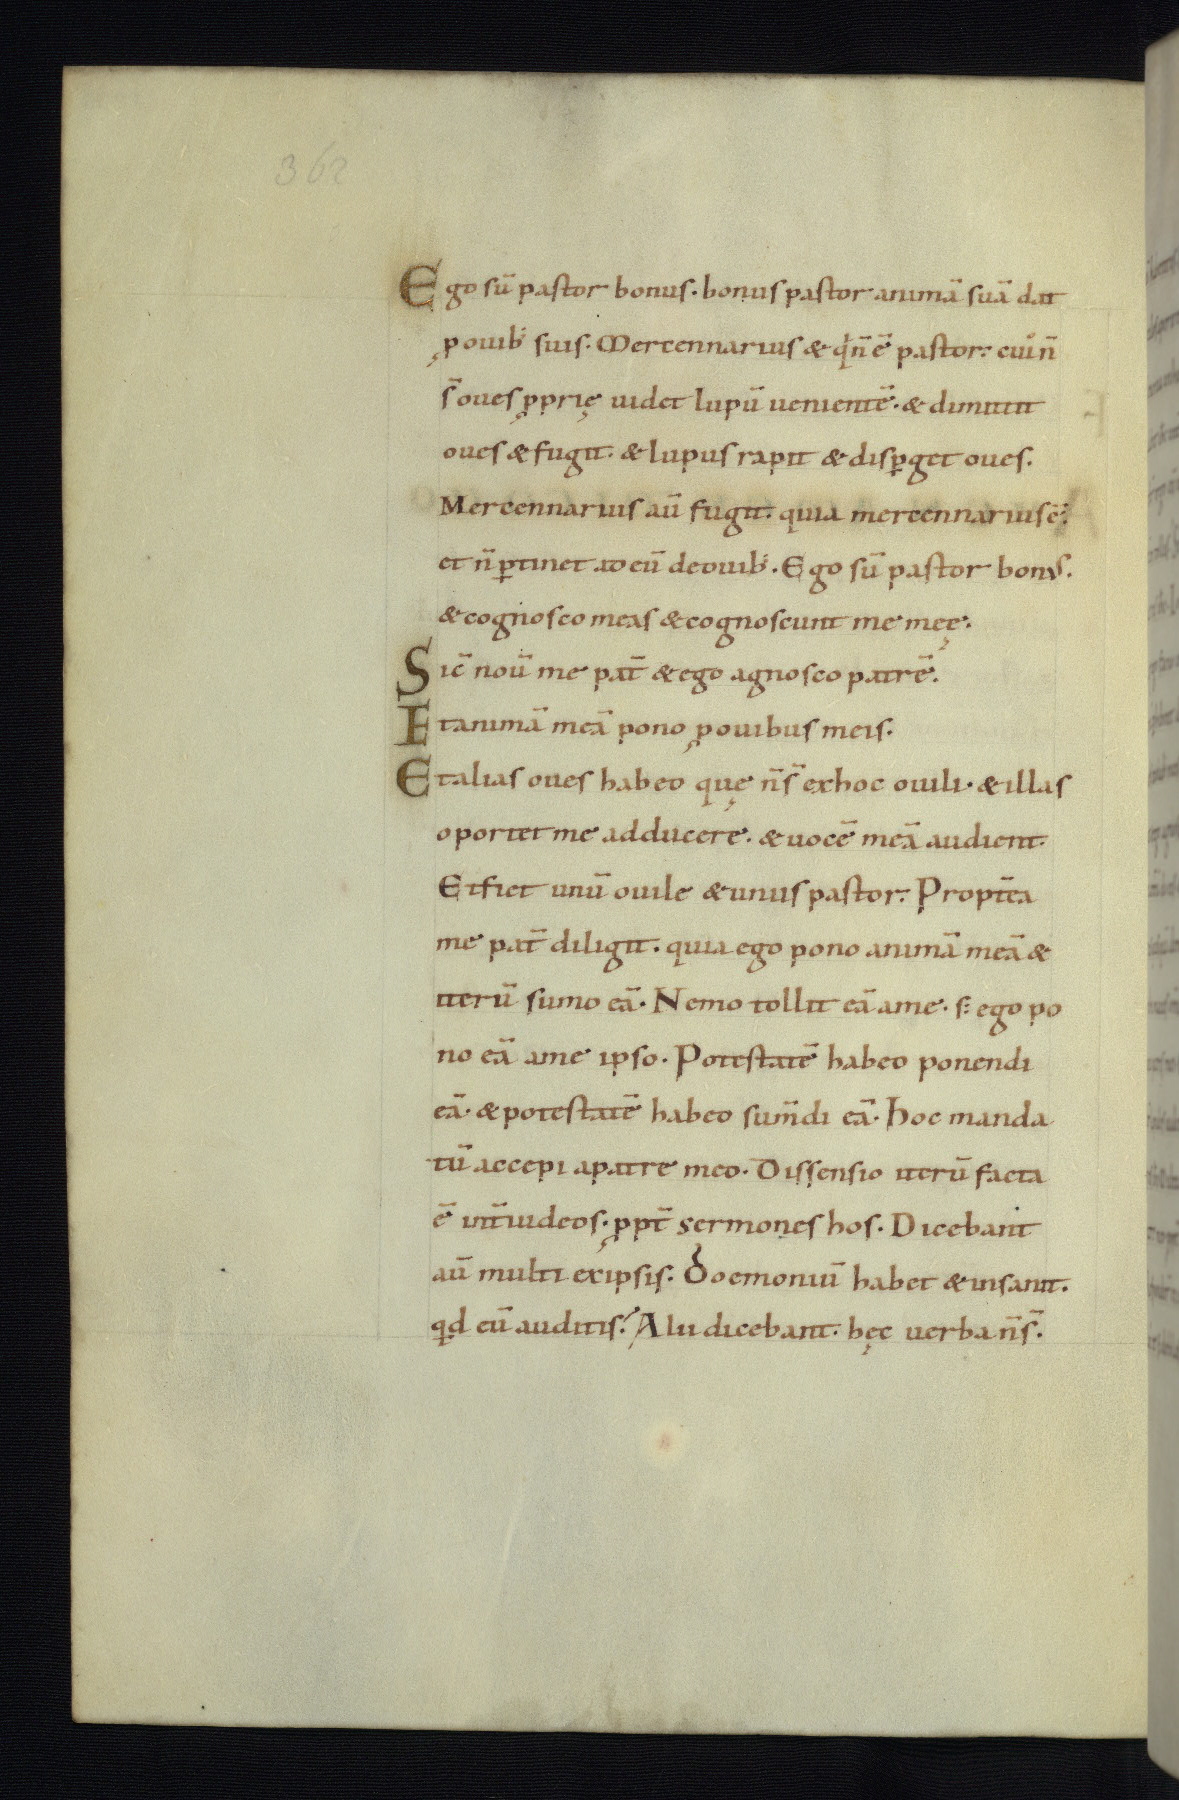 362
Ego sū pastor bonus. bonus pastor animā suā dat
ꝓ ouib; suis. Mercennarius & qͥ n̄ ē pastor: cuiͦ n̄
s̄ oues ꝓprię uidet lupū uenientē. & dimittit
oues & fugit. & lupus rapit & disꝑget oues.
Mercennarius aū fugit. quia mercennarius ē.
et n̄ ꝑtinet ad eū de ouib;. Ego sū pastor bonus.
& cognosco meas & cognoscunt me meę.
Sic̄ nouͥ me pat̄ & ego agnosco patrē.
Et animā meā pono ꝓ ouibus meis.
Et alias oues habeo quę n̄ s̄ ex hoc ouili. & illas
oportet me adducere. & uocē meā audient.
Et fiet unū ouile & unus pastor. Propt̄ea
me pat̄ diligit. quia ego pono animā meā &
iterū sumo eā. Nemo tollit eā a me. s; ego po
no eā a me ipso. Potestatē habeo ponendi
eā. & potestatē habeo sum̄di eā. Hoc manda
tū accepi a patre meo. Dissensio iterū facta
ē int̄ iudeos. ꝓpt̄ sermones hos. Dicebant
aū multi ex ipsis. Doemoniū habet & insanit.
qͥd eū auditis? Alii dicebant. hęc uerba n̄ s̄.